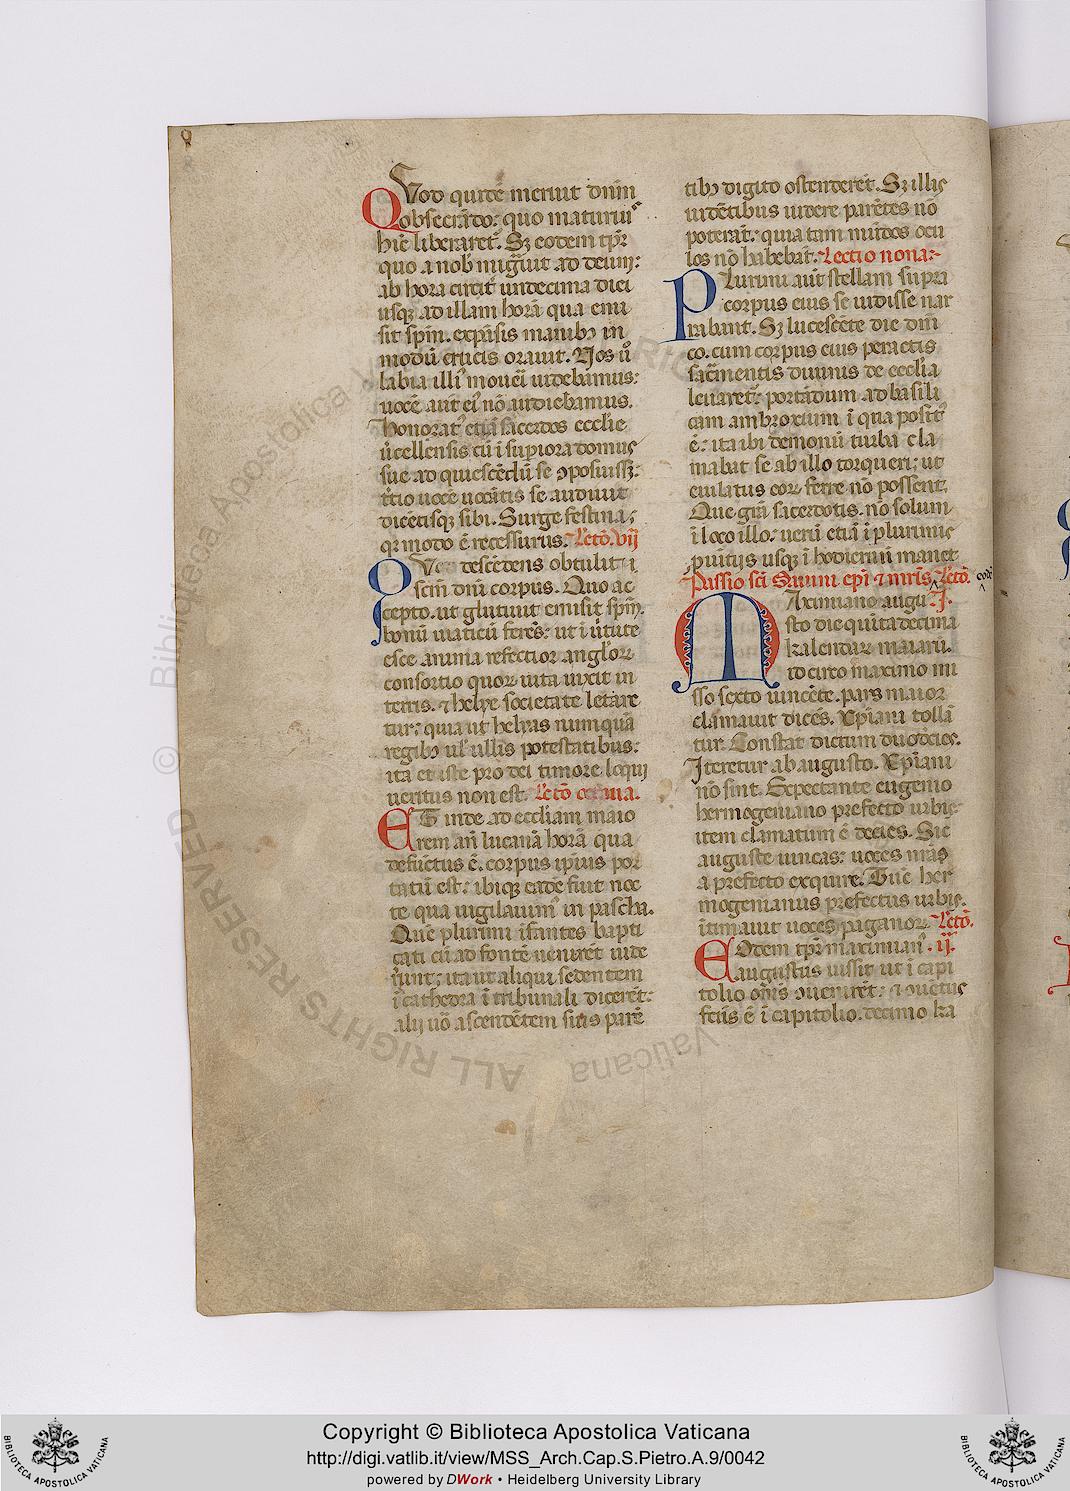 8
Quod quidē meruit dn̄m
obsecrādo: quo maturiꝰ
hūc liberaret̄. Sꝫ eodem tp̄r
quo a nob̄ migravit ad deum:
ab hora circit̄ undecima diei
usqꝫ ad illam horā qua emi
sit sp̄m. expāsis manibꝫ in
modū crucis oravit. Nos ū
labia illiꝰ moveri videbamus:
vocē aut̄ eiꝰ nō audiebamus.
Honoratꝰ etiā sacerdos ecclīe
v̄cellensis cū ī supiora domus
sue ad quiescēdū se ꝯposuisꝫ:
t̄tio vocē vocātis se audivit
dicētisqꝫ sibi. Surge festina;
qꝛ modo ē recessurus. Lect̄o. vij
Qui descēdens obtulit
scīm dn̄i corpus. Quo ac
cepto. ut glutivit emisit sp̄m.
bonū viaticū ferēs: ut ī v̄tute
esce anima refectior anglōꝝ
consortio quoꝝ vita vixit in
terris. ⁊ helye societate letare
tur: quia ut helyas numquā
regibꝫ vl̄ ullis potestatibus:
ita et iste pro dei timore loqui
veritus non est. Lect̄o octava.
ET inde ad eccliam maio
rem an̄ lucanā horā qua
defūctus ē. corpus ip̄ius por
tatū est: ibiqꝫ eadē fuit noc
te qua vigilavimꝰ in pascha.
Quē plurimi īfantes bapti
çati cū ad fontē venirēt vide
r̄unt: ita ut aliqui sedentem
ī cathedra ī tribunali dicerēt:
alij v̄o ascendētem suis parē
tibꝫ digito ostenderēt. Sꝫ illis
vidētibus videre parētes nō
poterāt: quia tam mūdos ocu
los nō habebāt. Lectio nona:
Plurimi aut̄ stellam supra
corpus eius se vidisse nar
rabant. Sꝫ lucescēte die dn̄i
co. cum corpus eius peractis
sac̄mentis divinis de ecclīa
levaret̄: portādum ad basili
cam ambroxium ī qua positꝰ
ē: ita ibi demonū turba cla
mabat se ab illo torqueri: ut
eiulatus eoꝝ ferre nō possent.
Que gr̄a sacerdotis. nō solum
ī loco illo: verū etiā ī plurimis
puītijs usqꝫ ī hodiernū manet
Passio scī Savini epī ⁊ mr̄is Lect̄o.
Maximiano augu .I.
sto die quīta decima
kalendaꝝ maiarū.
id circo maximo mi
sso sexto vincēte. pars maior
clamavit dicēs. Xp̄iani tollā
tur. Constat dictum duodecies.
Iteretur ab augusto. Xp̄iani
nō sint. Sepectante eugenio
hermogeniano prefecto urbis
item clamatum ē decies. Sic
auguste vincas: voces n̄ras
a prefecto exquire. Tūc her
mogenianus prefectus urbis.
ītimavit voces paganoꝝ. Lect̄o.
Eodem tp̄r maximianꝰ .ij.
augustus iussit ut ī capi
tolio om̄s ꝯvenirēt: ⁊ ꝯvētus
fc̄us ē ī capitolio. decimo ka
© Biblioteca Apostolica Vaticana
ALL RIGHTS RESERVED
BIBLIOTECA APOSTOLICA VATICANA
Copyright © Biblioteca Apostolica Vaticana
http://digi.vatlib.it/view/MSS_Arch.Cap.S.Pietro.A.9/0042
powered by DWork • Heidelberg University Library
BIBLIOTECA APOSTOLICA VATICANA